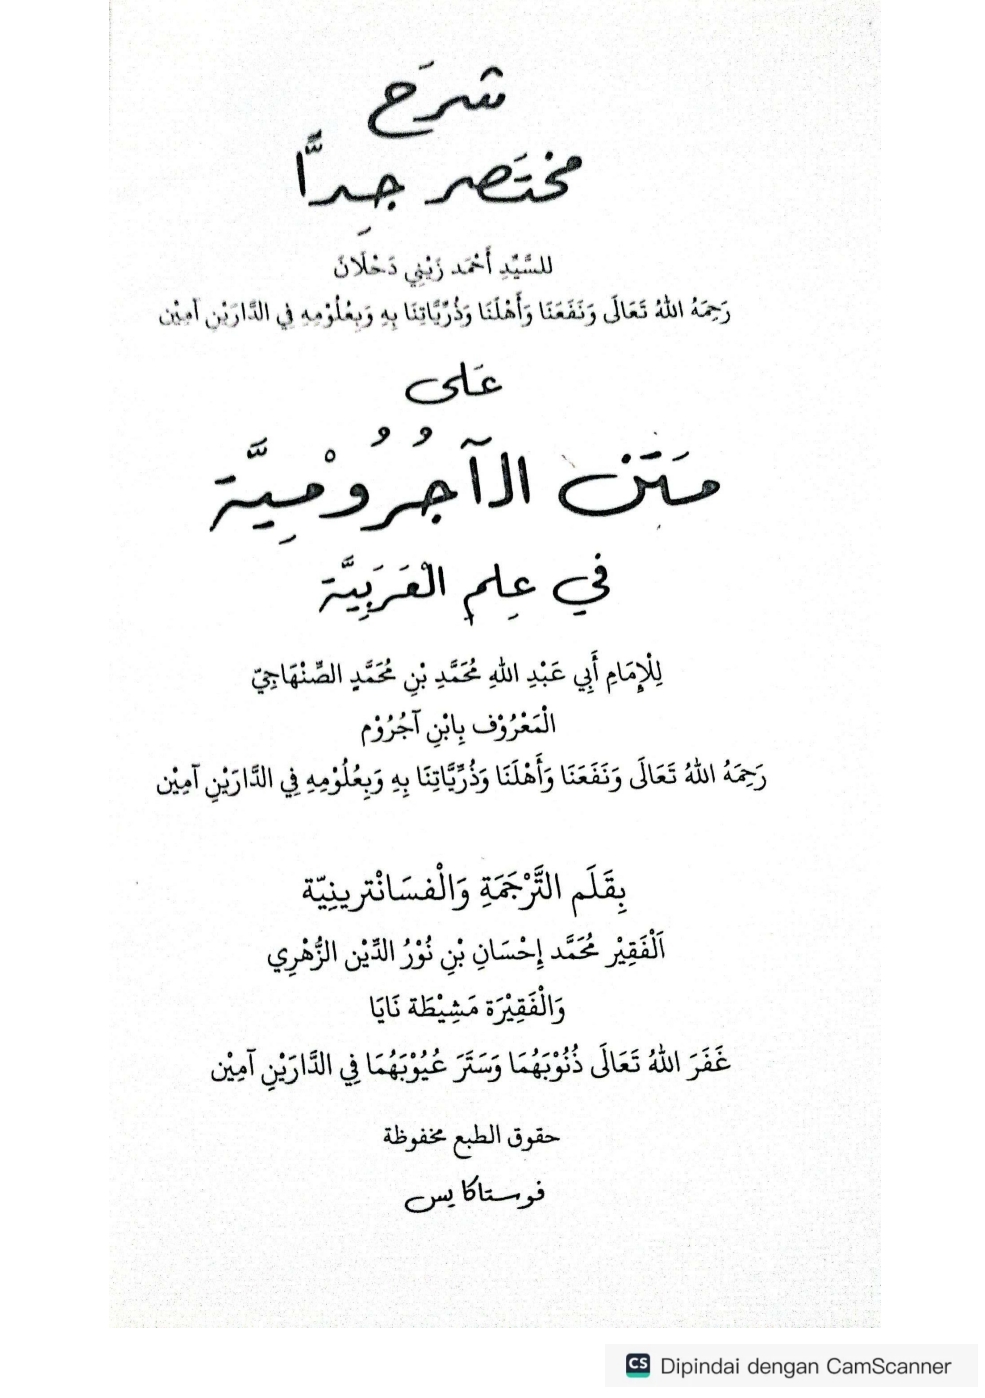 شرَح
مختَصر جِدًّا
للسَّيِّدِ أَحْمَد زَيْنِي دَحْلَانَ
رَحِمَهُ اللهُ تَعَالَى وَنَفَعَنَا وَأَهْلَنَا وَذُرِّيَّاتِنَا بِهِ وَبِعُلُوْمِهِ فِي الدَّارَيْنِ آمِيْن
عَلى
مَتَن الآجُرُوْمِيَّة
في عِلمِ الْعَرَبِيَّة
لِلْإِمَامِ أَبِي عَبْدِ اللهِ مُحَمَّدِ بْنِ مُحَمَّدٍ الصِّنْهَاجِيّ
الْمَعْرُوْف بِابْنِ آجُرُوْم
رَحِمَهُ اللهُ تَعَالَى وَنَفَعَنَا وَأَهْلَنَا وَذُرِّيَّاتِنَا بِهِ وَبِعُلُوْمِهِ فِي الدَّارَيْنِ آمِيْن
بِقَلَم التَّرْجَمَةِ وَالْفسَانْترينِيّة
اَلْفَقِيْر مُحَمَّد إِحْسَانِ بْنِ نُوْرُ الدِّيْن الزُّهْرِي
وَالْفَقِيْرَة مَشِيْطَة نَايَا
غَفَرَ اللهُ تَعَالَى ذُنُوْبَهُمَا وَسَتَرَ عُيُوْبَهُمَا فِي الدَّارَيْنِ آمِيْن
حقوق الطبع مخفوظة
فوستاكايس
CS Dipindai dengan CamScanner